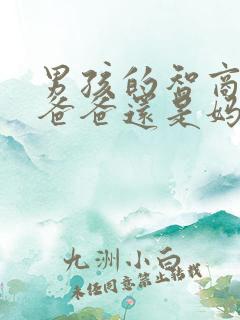 男孩的智商
爸爸还是妈
九洲小白
未经同意禁止转载